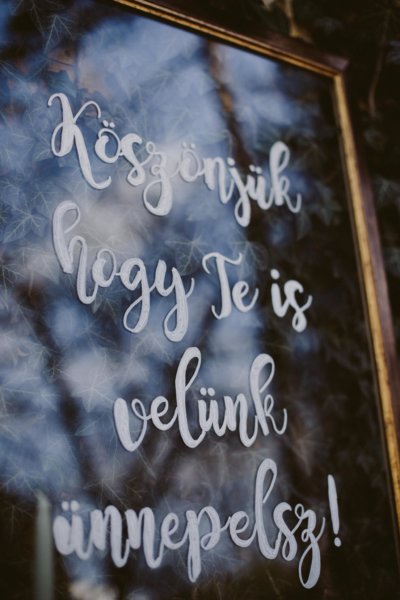 Köszönjük
hogy Te is
velünk
ünnepelsz!